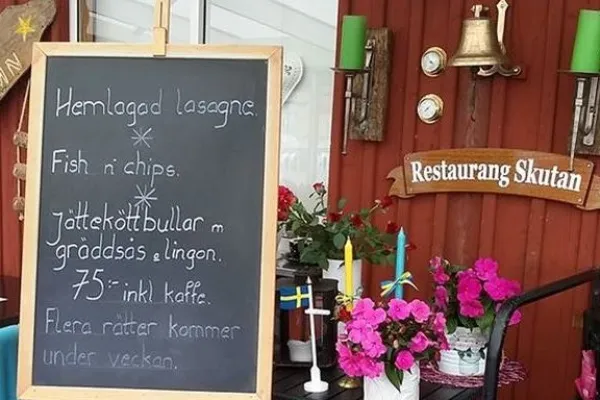 Hemlagad lasagne.
Fish n' chips.
Jätteköttbullar m
gräddsås & lingon.
75:- inkl kaffe.
Flera rätter kommer
under veckan.
Restaurang Skutan